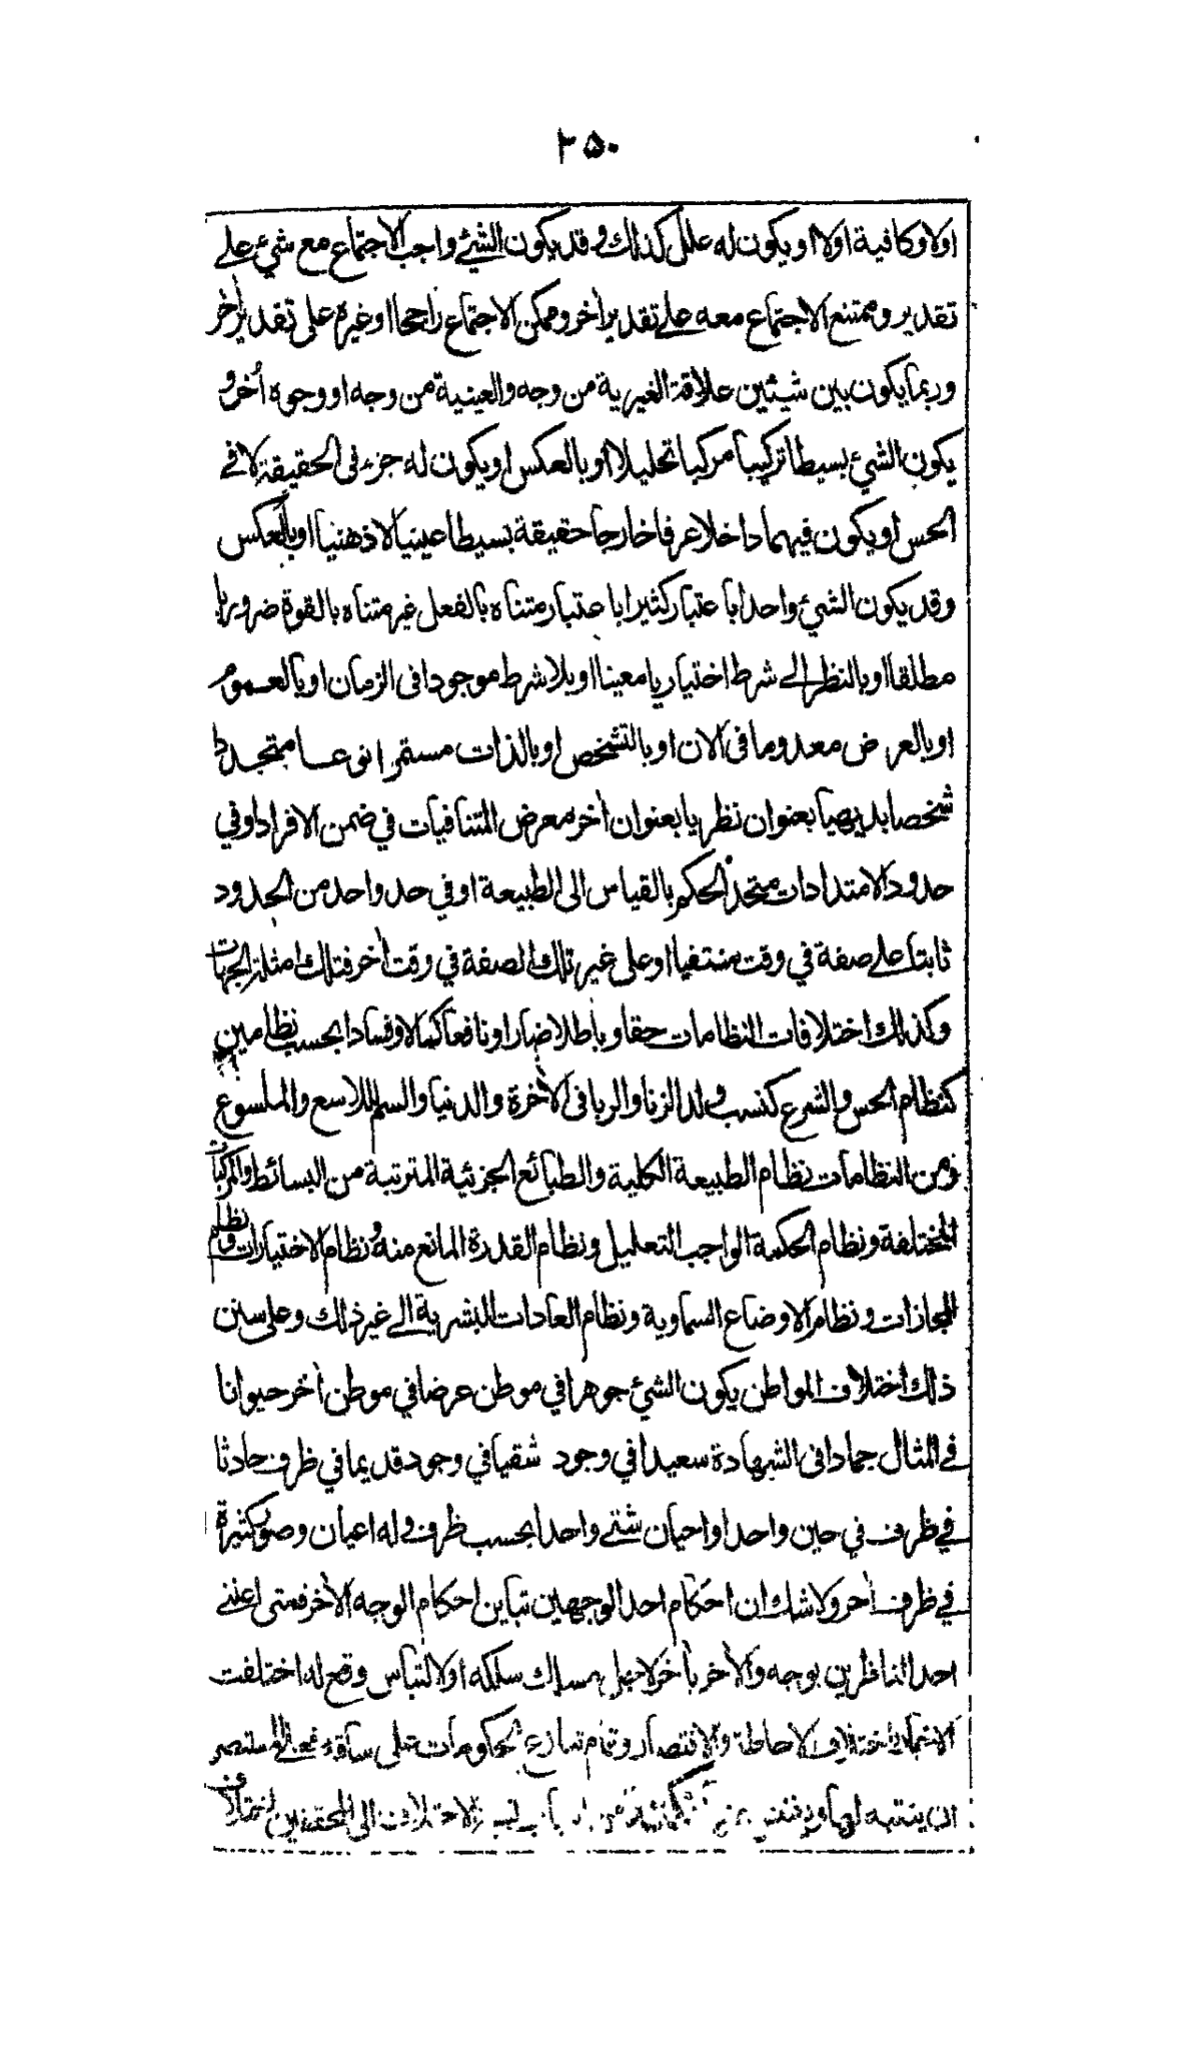 ٢٥٠
اولا وكافية اولا او يكون له علل كذلك وقد يكون الشيئ واجب الاجتماع مع شيئ على
تقدير وممتنع الاجتماع معه على تقدير اخر وممكن الاجتماع راجحا او غيره على تقدير اخر
وربما يكون بين شيئين علاقة الغيرية من وجه والعينية من وجه او وجوه أخر و
يكون الشيئ بسيطا تركيبا مركبا تحليلا او بالعكس او يكون له جزء فى الحقيقة لا فى
الحس او يكون فيهما داخلا عرفا خارجا حقيقة بسيطا عينيا لا ذهنيا او بالعكس
وقد يكون الشيئ واحدا باعتبار كثيرا باعتبار متناه بالفعل غير متناه بالقوة ضروريا
مطلقا او بالنظر الى شرط اختياريا معينا او بلا شرط موجودا فى الزمان او بالعموم
او بالعرض معدوما فى الان او بالتشخص او بالذات مستمرا نوعا متجددا
شخصا بديهيا بعنوان نظريا بعنوان اخر معرض المتنافيات في ضمن الافراد او في
حدود الامتدادات متحد الحكم بالقياس الى الطبيعة او في حد واحد من الحدود
ثابتا على صفة في وقت منتفيا او على غير تلك الصفة في وقت اخر فتلك امثلة الجهات
وكذلك اختلافات النظامات حقا وباطلا ضارا ونافعا كمالا وفسادا بحسب نظامين
كنظام الحس والشرع كنسب ولد الزنا والربا فى الأخرة والدنيا والسم للاسع والملسوع
ومن النظامات نظام الطبيعة الكلية والطبائع الجزئية المترتبة من البسائط والمركبات
المختلفة ونظام الحكمة الواجب التعليل ونظام القدرة المانع منه ونظام الاختيارات ونظام
المجازات ونظام الاوضاع السماوية ونظام العادات البشرية الى غير ذلك وعلى سنن
ذلك اختلاف المواطن يكون الشيئ جوهرا في موطن عرضا في موطن أخر حيوانا
فى المثال جمادا فى الشهادة سعيدا في وجود شقيا في وجود قديما في ظرف حادثا
في ظرف في حين واحد او احيان شتى واحدا بحسب ظرف وله اعيان وصور كثيرة
في ظرف أخر ولا شك ان احكام احد الوجهين تباين احكام الوجه الأخر فمتى اعتنى
احد الناظرين بوجه والأخر بأخر لاجل مسلك سلكه او لالتباس وقع له اختلفت
لاختلاف الاحاطة والاقتصار وقام تنازع الحكومات على ساقه
ان ينتبه لها الاختلافات الى المحققين اختلاف